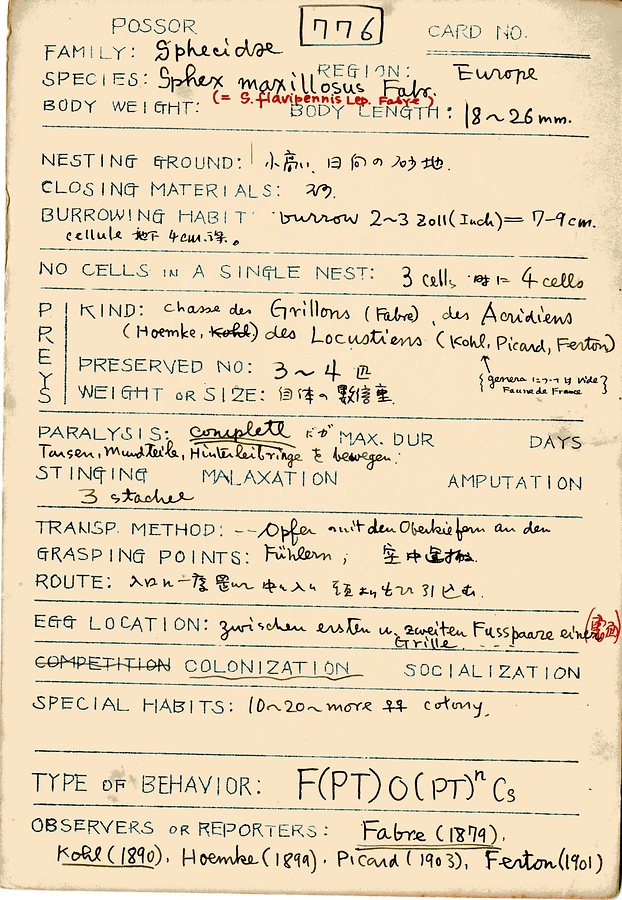 POSSOR 776 CARD NO.
FAMILY: Sphecidae
SPECIES: Sphex maxillosus Fabr. REGION: Europe
(= S. flavipennis Lep. Fabre)
BODY WEIGHT: BODY LENGTH: 18~26mm.
NESTING GROUND: 小高い 日向の砂地.
CLOSING MATERIALS: 砂.
BURROWING HABIT burrow 2~3 Zoll (Inch) = 7-9cm.
cellule 地下 4cm.深。
NO CELLS IN A SINGLE NEST: 3 cells 時に 4 cells
PREYS
KIND: chasse des Grillons (Fabre), des Acridiens
(Hoemke, Kohl) des Locustiens (Kohl, Picard, Ferton)
{genera については vide Faune de France}
PRESERVED NO: 3~4 匹
WEIGHT OR SIZE: 自体の數倍重.
PARALYSIS: complete だが MAX. DUR DAYS
Tarsen, Mundteile, Hinterleibringe を bewegen.
STINGING MALAXATION AMPUTATION
3 stachel
TRANSP. METHOD: -- Opfer mit den Oberkiefern an den
GRASPING POINTS: Fühlern; 空中運搬.
ROUTE: 入口に一度置いて中に入り 引込む.
EGG LOCATION: zwischen ersten u. zweiten Fusspaare einer
Grille. ----
COMPETITION COLONIZATION SOCIALIZATION
SPECIAL HABITS: 10~20~more colony.
TYPE OF BEHAVIOR: F(PT)O(PT)ⁿCs
OBSERVERS OR REPORTERS: Fabre (1879).
Kohl (1890). Hoemke (1899). Picard (1903), Ferton (1901)